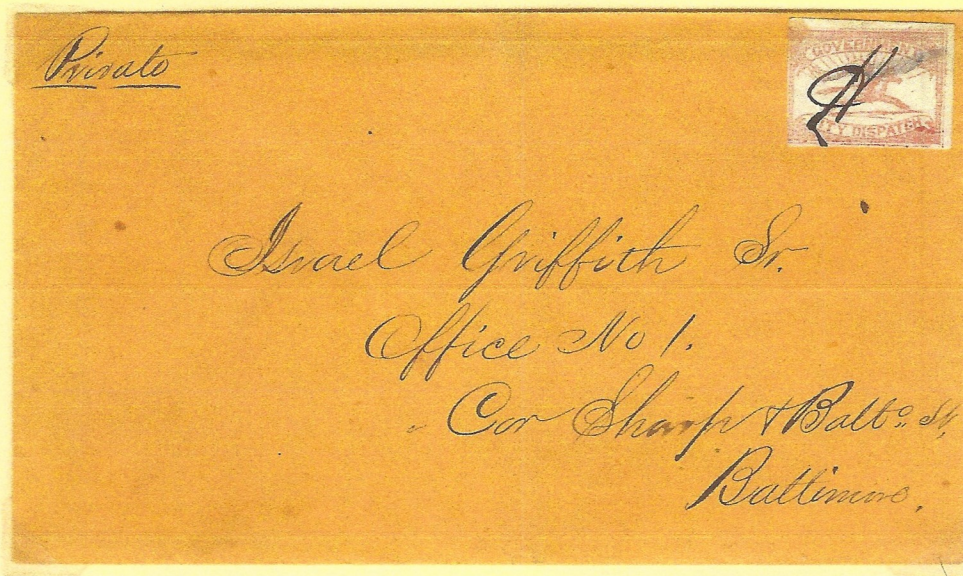 Private
GOVERNMENT
CITY DISPATCH
Israel Griffith Sr.
Office No 1.
Cor Sharp & Balto. St,
Baltimore.